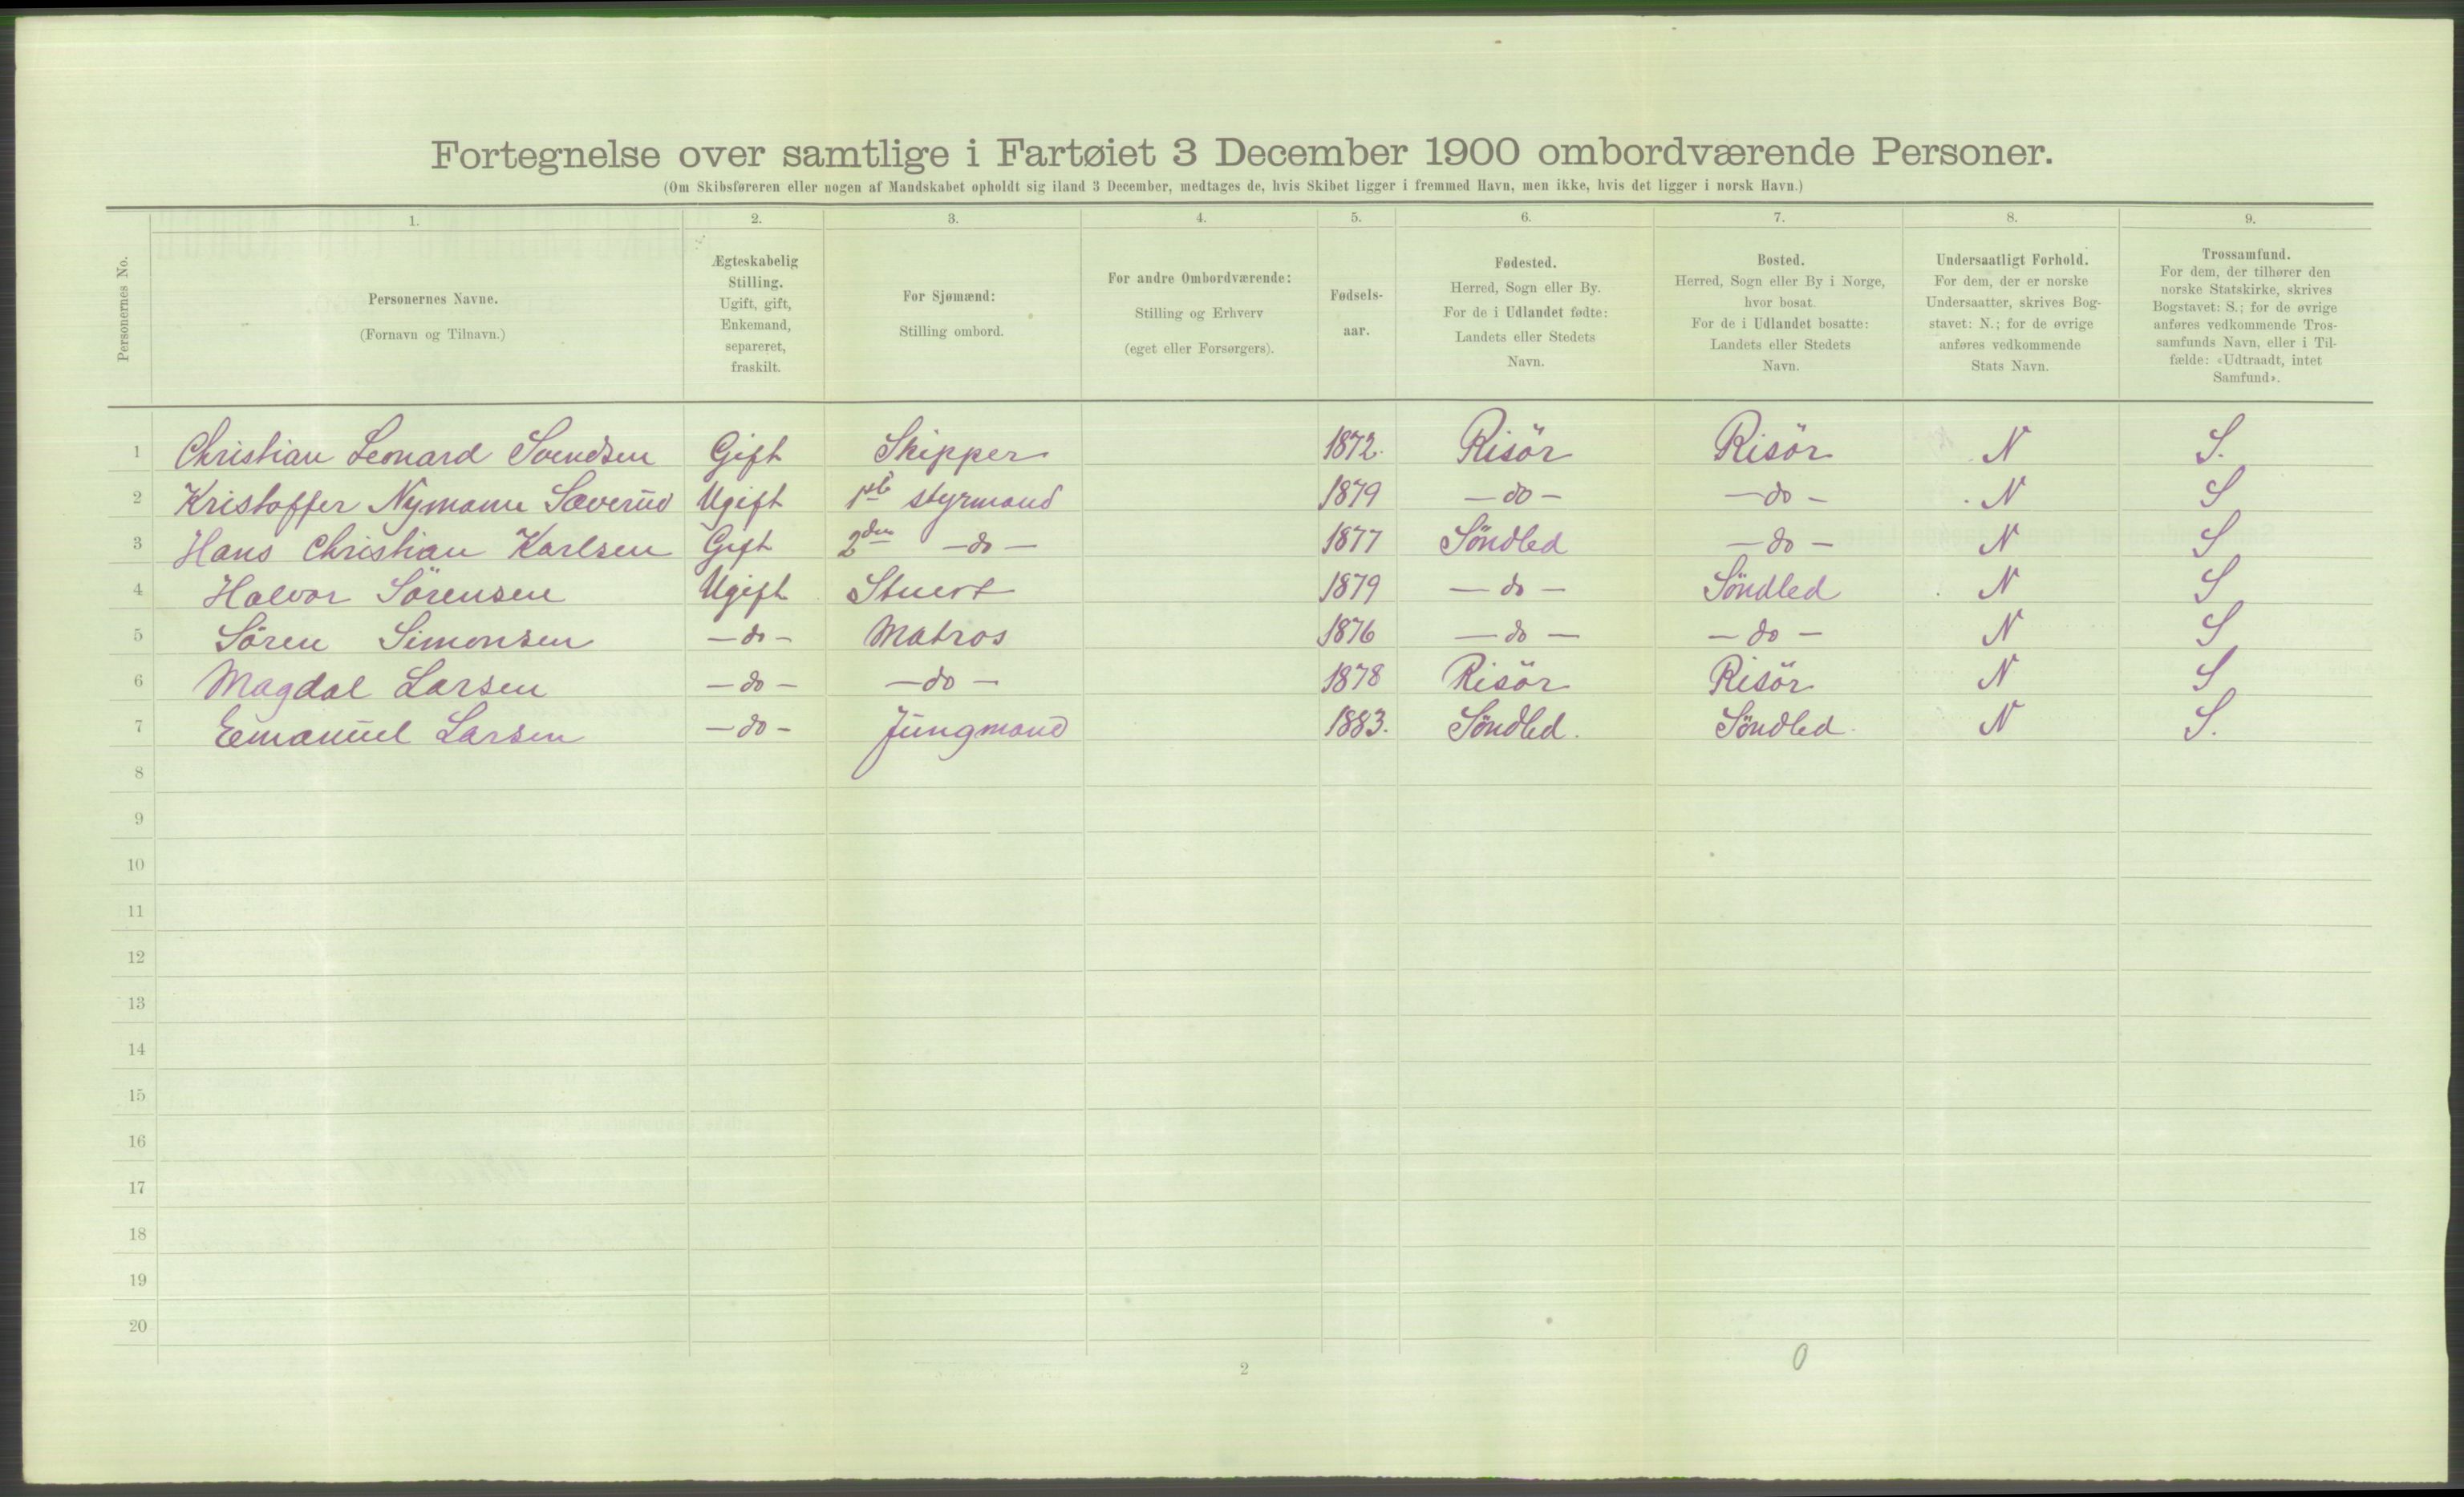 Fortegnelse over samtlige i Fartøiet 3 December 1900 ombordværende Personer.
(Om Skibsføreren eller nogen af Mandskabet opholdt sig iland 3 December, medtages de, hvis Skibet ligger i fremmed Havn, men ikke, hvis det ligger i norsk Havn.)
Personernes No.
1. 2. 3. 4. 5. 6. 7. 8. 9.
Personernes Navne.
(Fornavn og Tilnavn.)
Ægteskabelig
Stilling.
Ugift, gift,
Enkemand,
separeret,
fraskilt.
For Sjømænd:
Stilling ombord.
For andre Ombordværende:
Stilling og Erhverv
(eget eller Forsørgers).
Fødsels-
aar.
Fødested.
Herred, Sogn eller By.
For de i Udlandet fødte:
Landets eller Stedets
Navn.
Bosted.
Herred, Sogn eller By i Norge,
hvor bosat.
For de i Udlandet bosatte:
Landets eller Stedets
Navn.
Undersaatligt Forhold.
For dem, der er norske
Undersaatter, skrives Bog-
stavet: N.; for de øvrige
anføres vedkommende
Stats Navn.
Trossamfund.
For dem, der tilhører den
norske Statskirke, skrives
Bogstavet: S.; for de øvrige
anføres vedkommende Tros-
samfunds Navn, eller i Til-
fælde: «Udtraadt, intet
Samfund».
1 Christian Leonard Svendsen Gift Skipper 1872. Risör Risör N S.
2 Kristoffer Nymann Sæverud Ugift 1ste styrmand 1879 — do — — do — N S
3 Hans Christian Karlsen Gift 2den — do — 1877 Söndled — do — N S
4 Halvor Sörensen Ugift Stuert 1879 — do — Söndled N S
5 Sören Simonsen — do — Matros 1876 — do — — do — N S
6 Magdal Larsen — do — — do — 1878 Risör Risör N S
7 Emanuel Larsen — do — Jungmand 1883. Söndled. Söndled. N S.
8
9
10
11
12
13
14
15
16
17
18
19
20
2
0